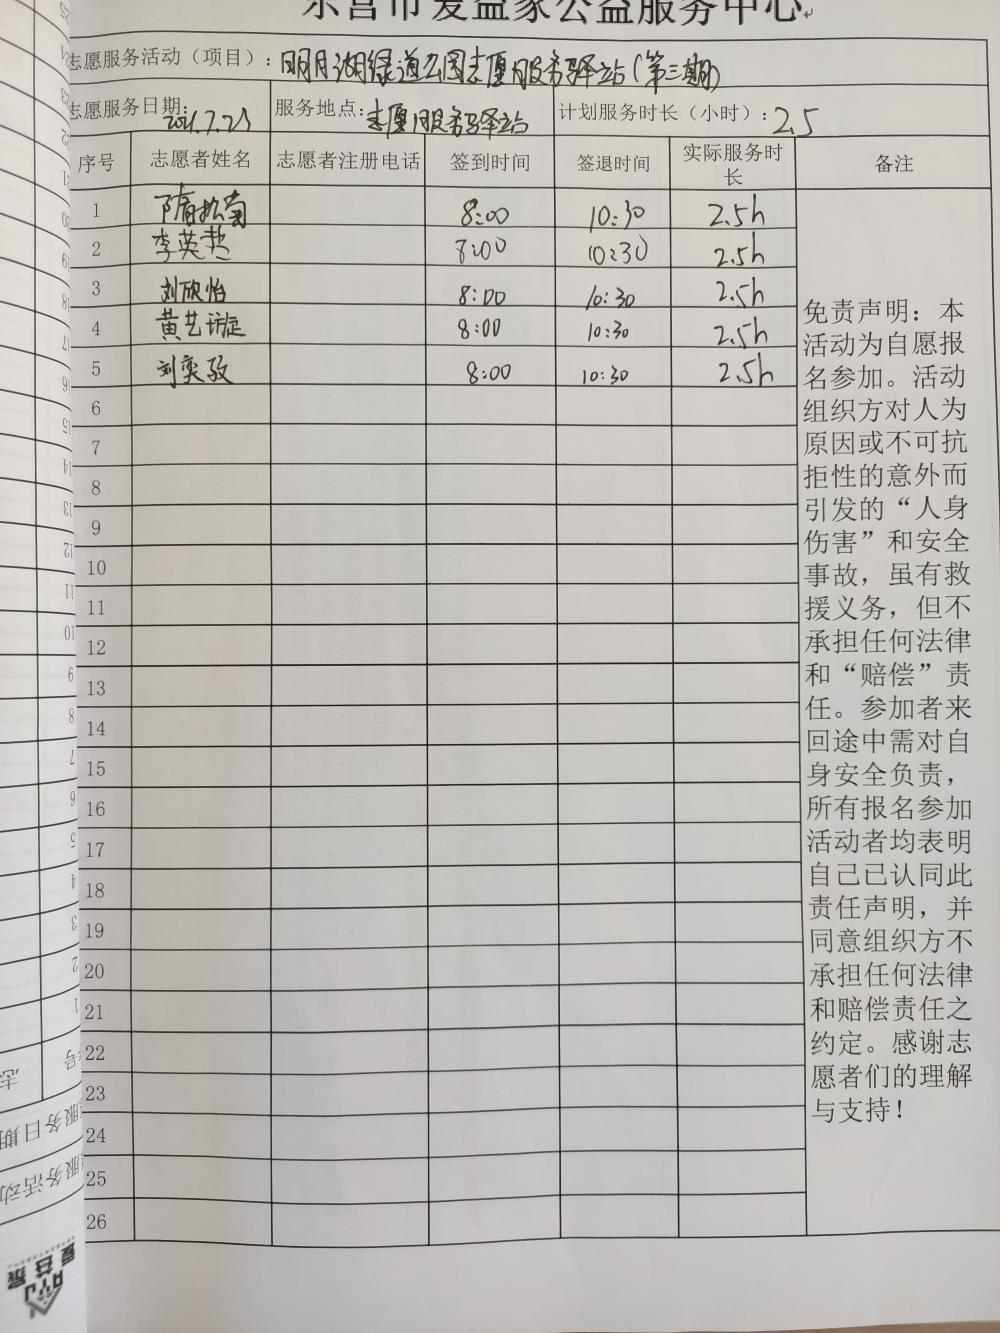 东营市爱益家公益服务中心
志愿服务活动（项目）：明月湖绿道公园志愿服务驿站（第三期）
志愿服务日期：2021.7.23 服务地点：志愿服务驿站 计划服务时长（小时）：2.5
序号 志愿者姓名 志愿者注册电话 签到时间 签退时间 实际服务时长 备注
1 8:00 10:30 2.5h
2 李英 8:00 10:30 2.5h
3 刘欣怡 8:00 10:30 2.5h
4 黄艺 8:00 10:30 2.5h
5 刘奕 8:00 10:30 2.5h
6
7
8
9
10
11
12
13
14
15
16
17
18
19
20
21
22
23
24
25
26
免责声明：本
活动为自愿报
名参加。活动
组织方对人为
原因或不可抗
拒性的意外而
引发的“人身
伤害”和安全
事故，虽有救
援义务，但不
承担任何法律
和“赔偿”责
任。参加者来
回途中需对自
身安全负责，
所有报名参加
活动者均表明
自己已认同此
责任声明，并
同意组织方不
承担任何法律
和赔偿责任之
约定。感谢志
愿者们的理解
与支持！
爱益家
AYJ
服务活动
服务日期